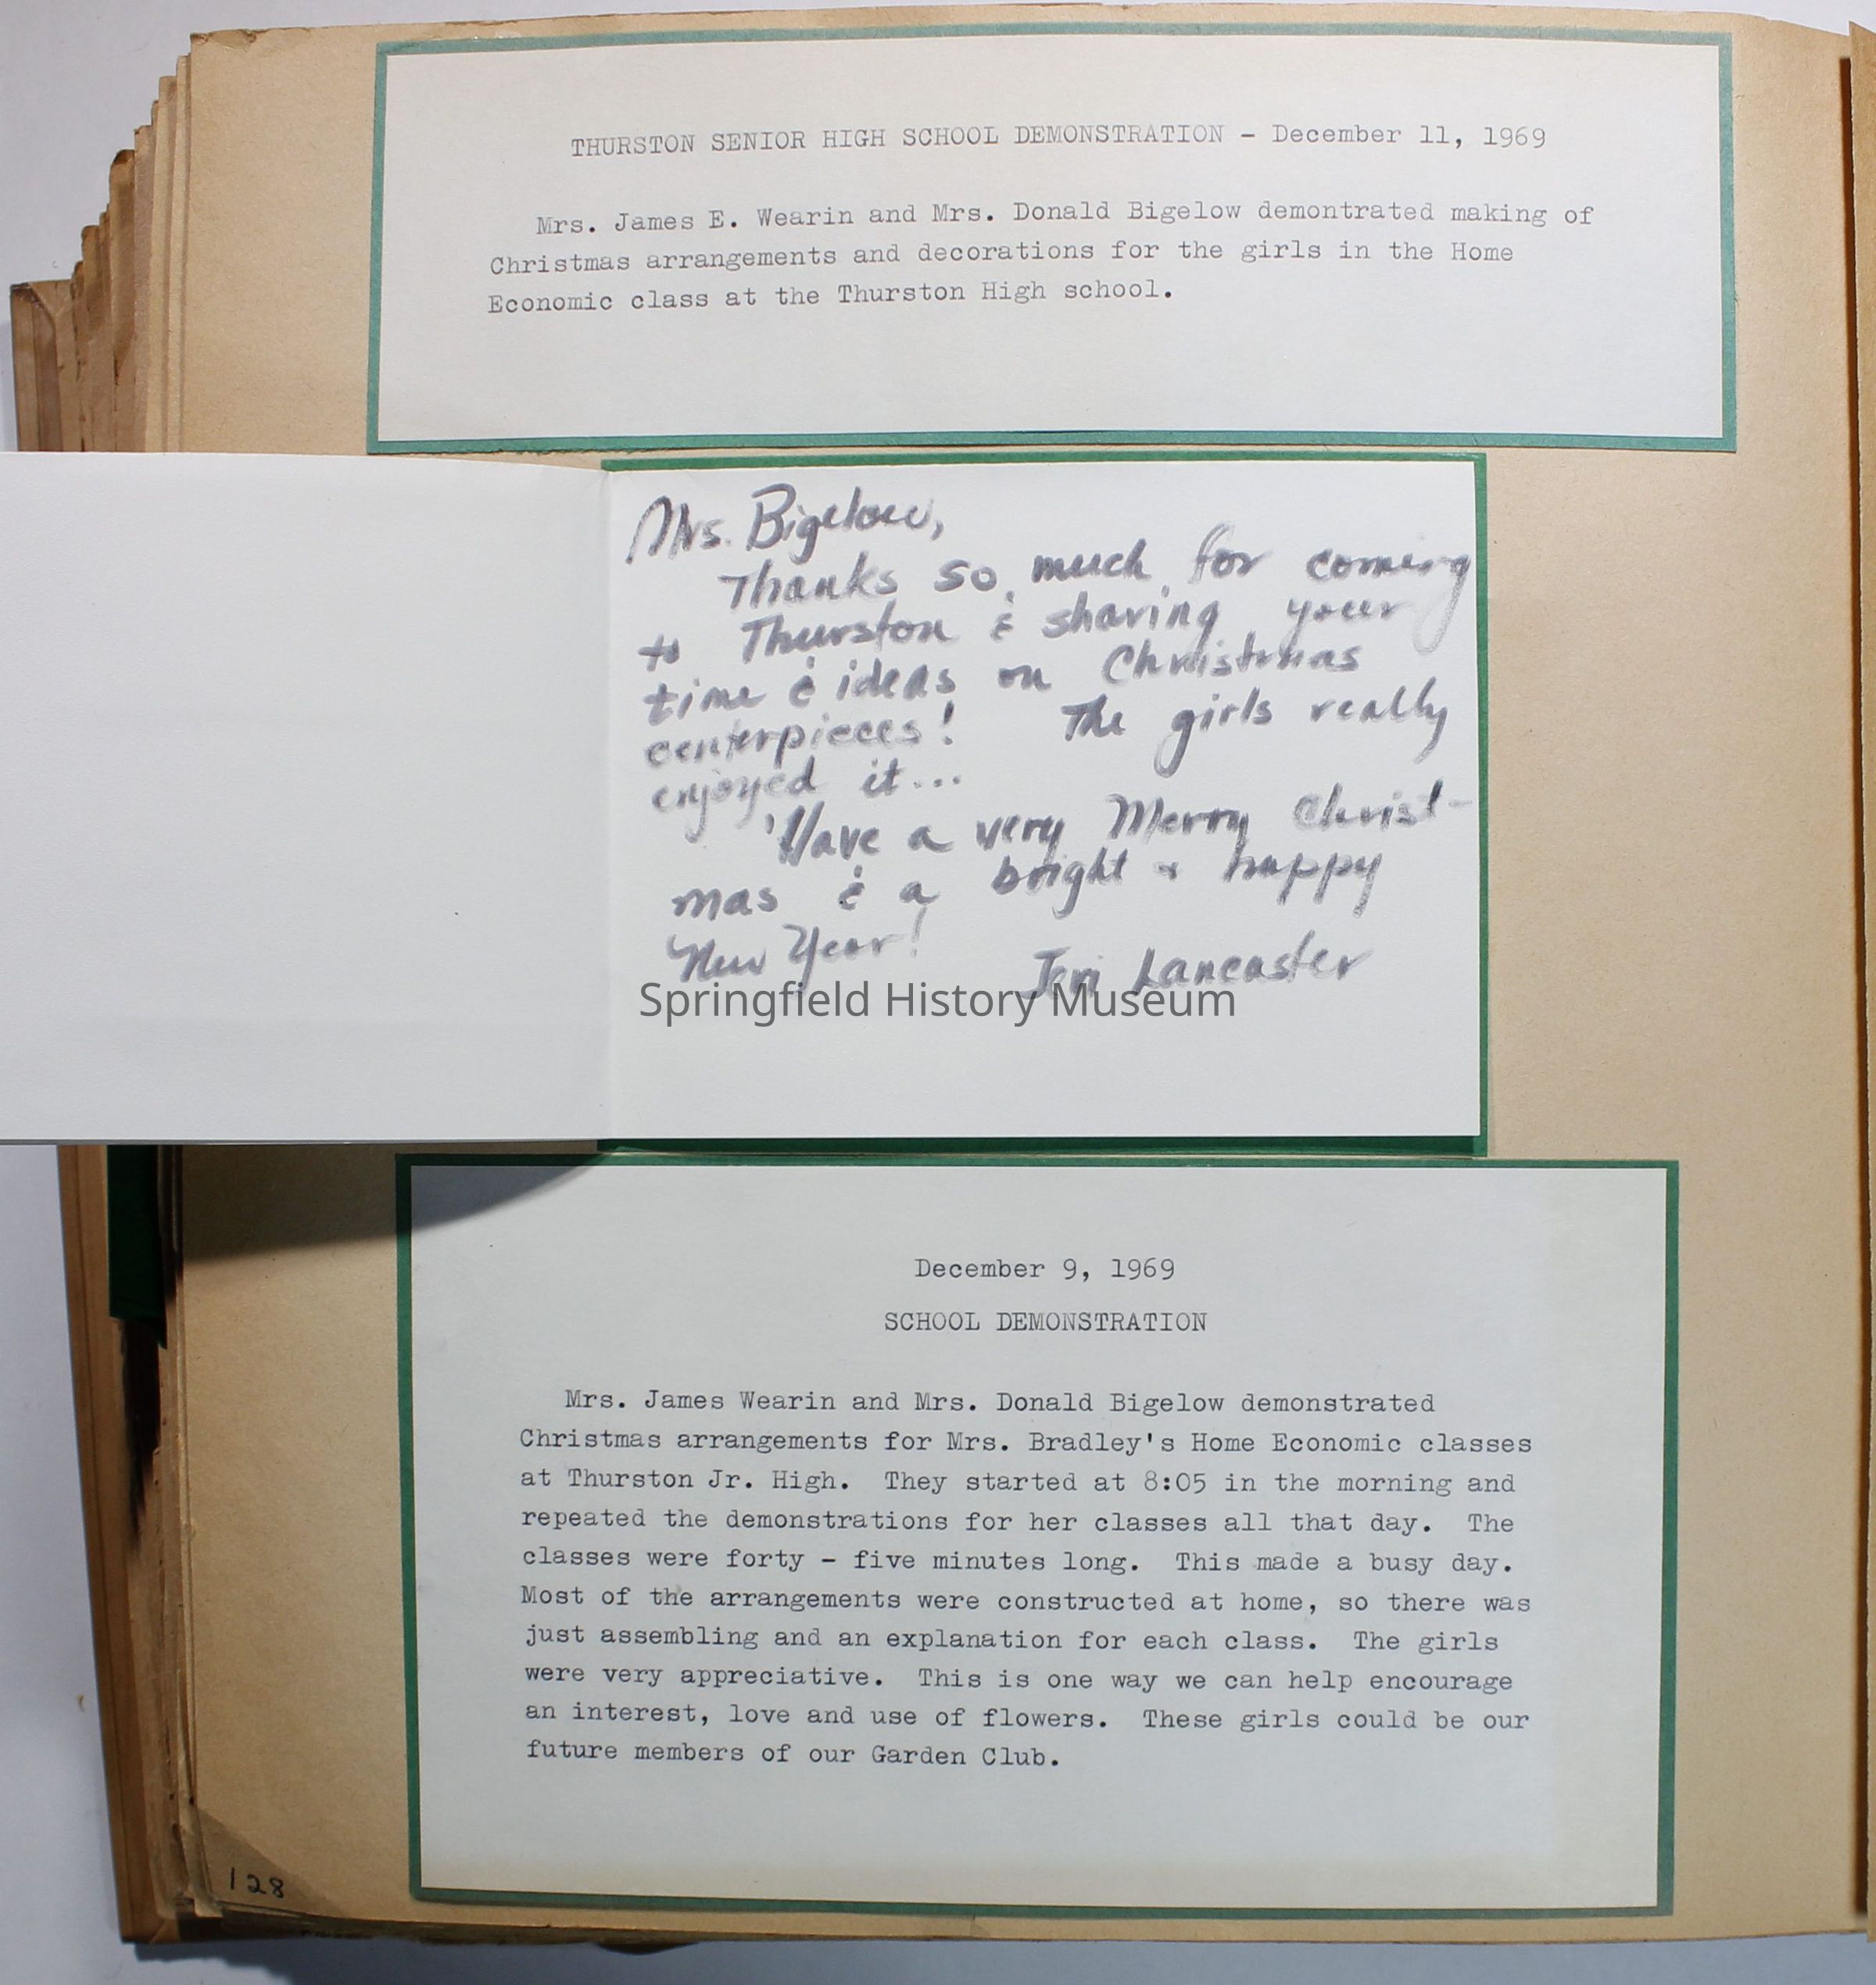 THURSTON SENIOR HIGH SCHOOL DEMONSTRATION - December 11, 1969
Mrs. James E. Wearin and Mrs. Donald Bigelow demontrated making of
Christmas arrangements and decorations for the girls in the Home
Economic class at the Thurston High school.
Mrs. Bigelow,
Thanks so much for coming
to Thurston & sharing your
time & ideas on Christmas
centerpieces! The girls really
enjoyed it...
Have a very Merry Christ-
mas & a bright & happy
New Year!
Jeri Lancaster
Springfield History Museum
December 9, 1969
SCHOOL DEMONSTRATION
Mrs. James Wearin and Mrs. Donald Bigelow demonstrated
Christmas arrangements for Mrs. Bradley's Home Economic classes
at Thurston Jr. High. They started at 8:05 in the morning and
repeated the demonstrations for her classes all that day. The
classes were forty - five minutes long. This made a busy day.
Most of the arrangements were constructed at home, so there was
just assembling and an explanation for each class. The girls
were very appreciative. This is one way we can help encourage
an interest, love and use of flowers. These girls could be our
future members of our Garden Club.
128